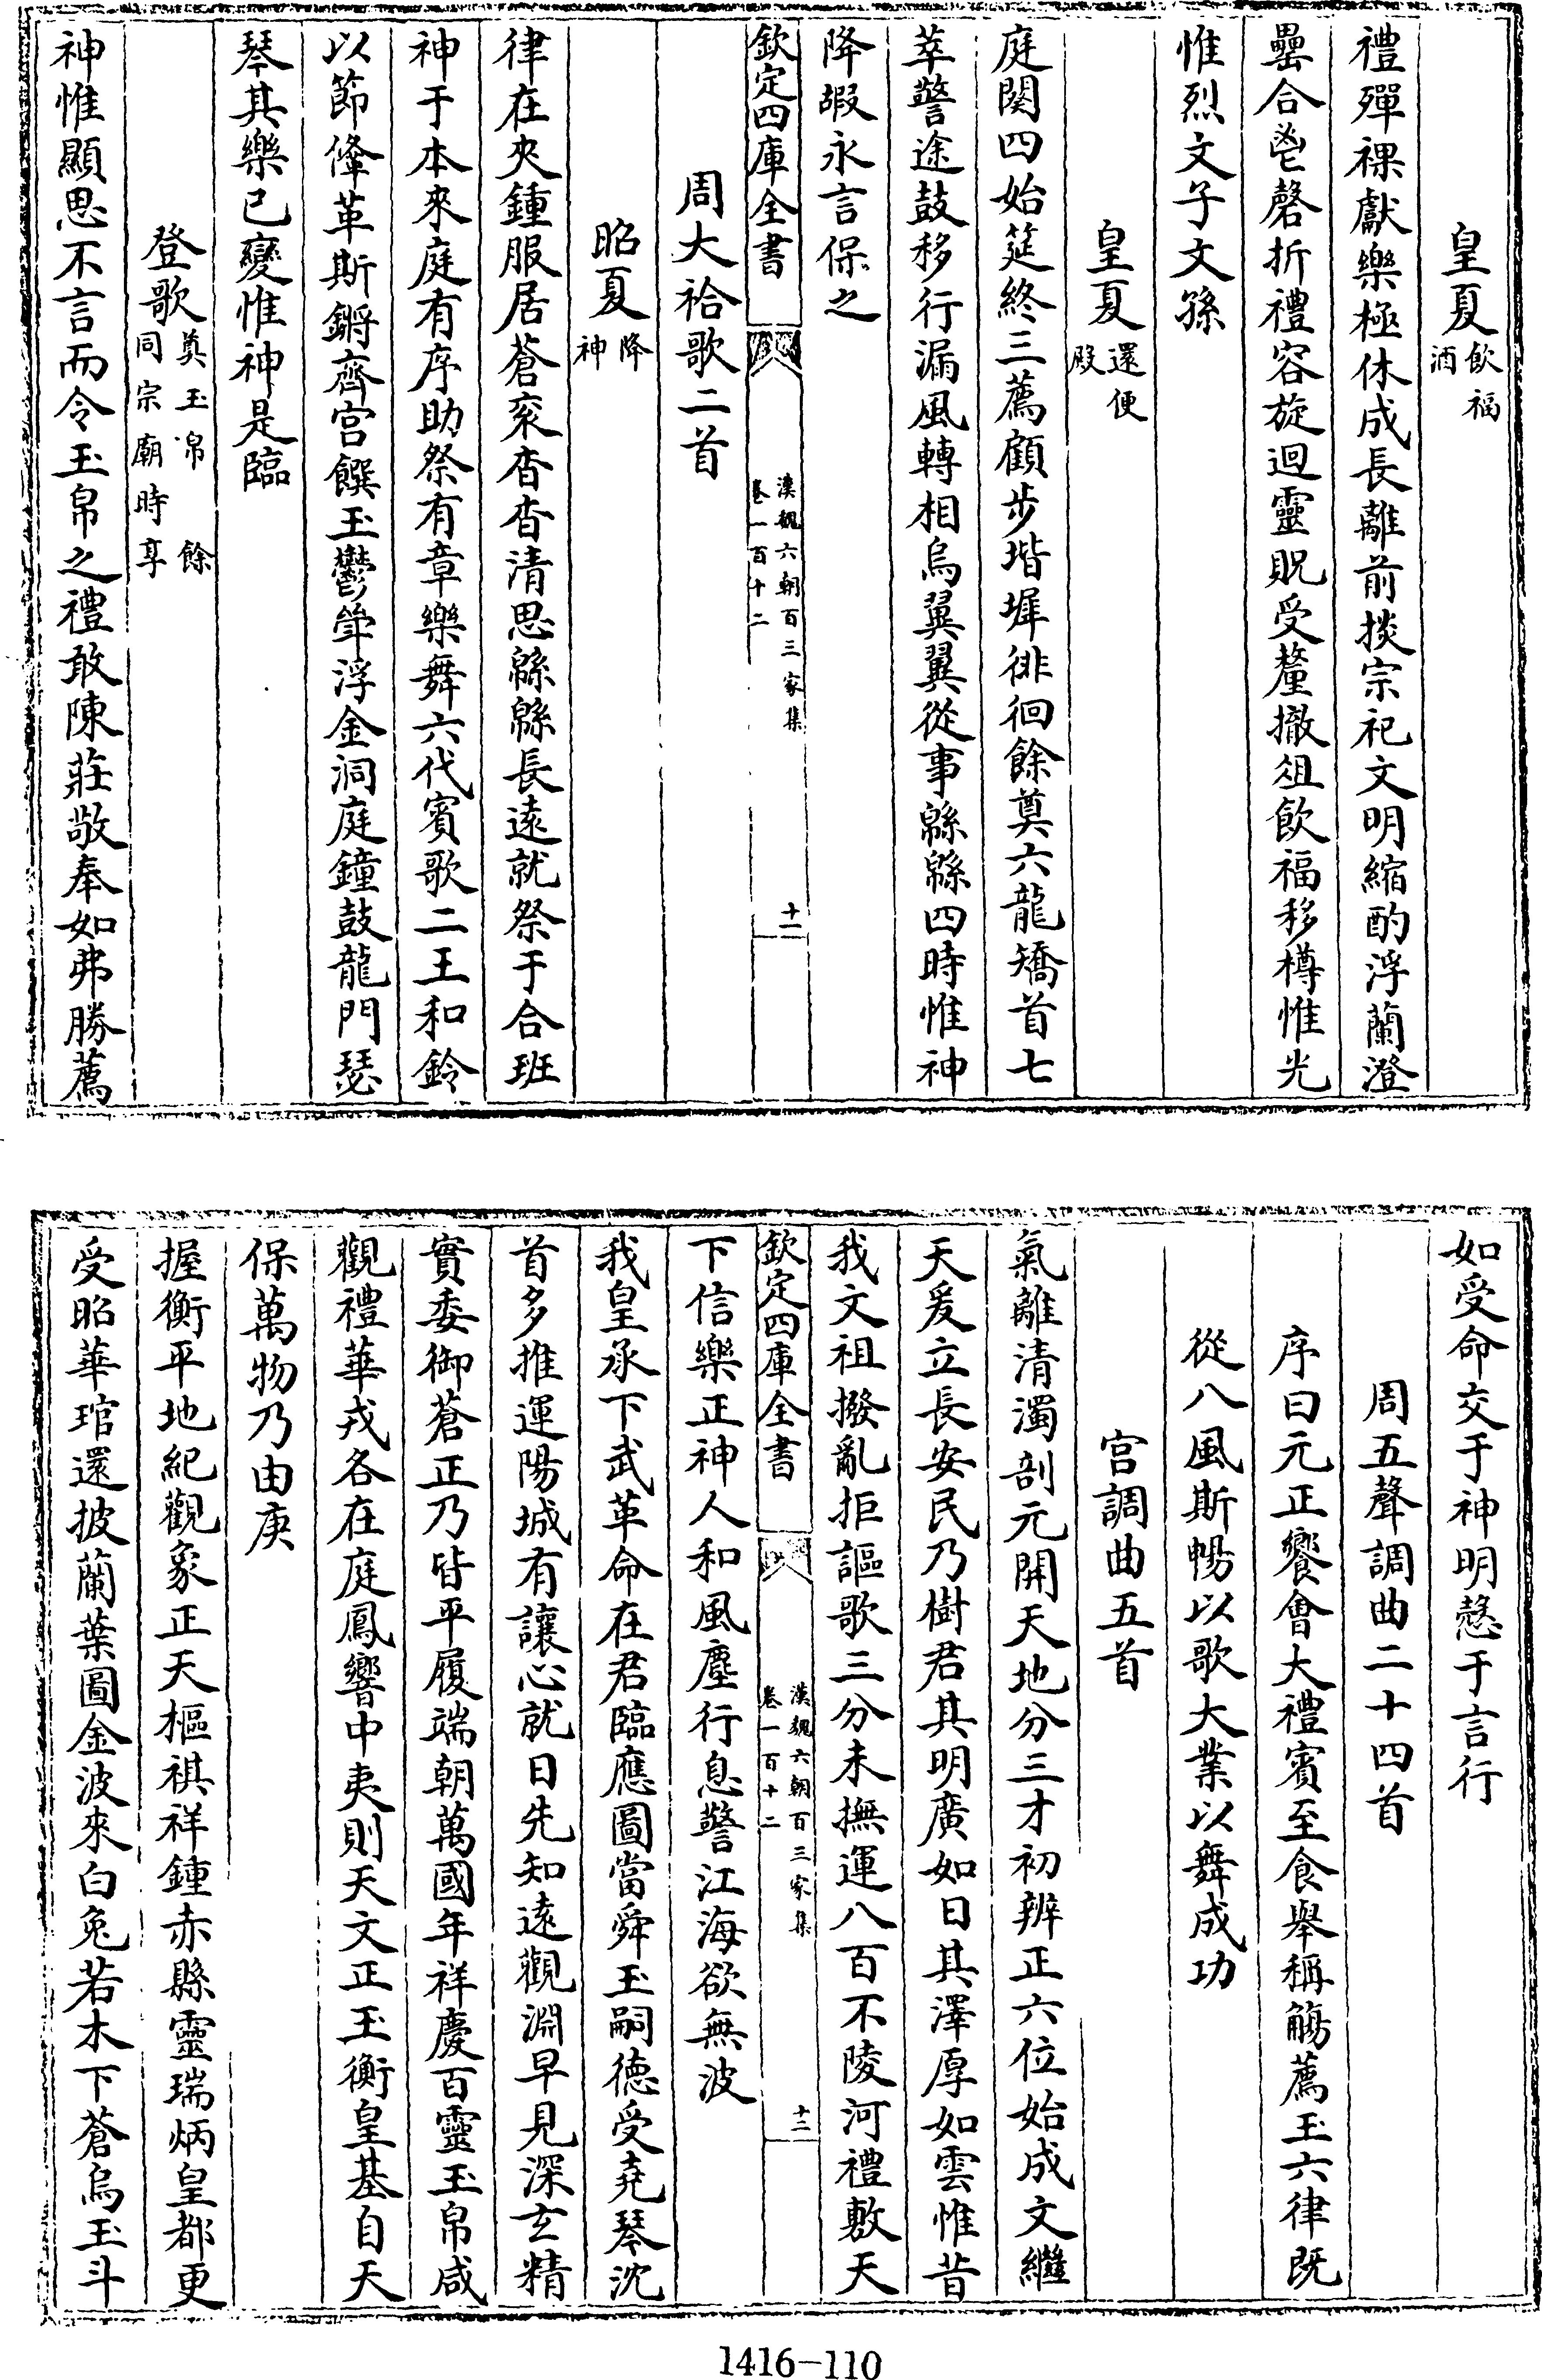 皇夏飲福酒
禮殫祼獻樂極休成長離前掞宗祀文明縮酌浮蘭澄
罍合鬯磬折禮容旋迴靈貺受釐撤俎飲福移樽惟光
惟烈文子文孫
皇夏還便殿
庭闋四始筵終三薦顧步堦墀徘徊餘奠六龍矯首七
萃警途鼓移行漏風轉相烏翼翼從事緜緜四時惟神
降嘏永言保之
欽定四庫全書
漢魏六朝百三家集
卷一百十二
十一
周大祫歌二首
昭夏降神
律在夾鍾服居蒼衮杳杳清思緜緜長遠就祭于合班
神于本來庭有序助祭有章樂舞六代賓歌二王和鈴
以節鞗革斯鏘齊宫饌玉鬱斚浮金洞庭鐘鼓龍門瑟
琴其樂已變惟神是臨
登歌奠玉帛 餘同宗廟時享
神惟顯思不言而令玉帛之禮敢陳莊敬奉如弗勝薦
如受命交于神明慤于言行
周五聲調曲二十四首
序曰元正饗會大禮賓至食舉稱觴薦玉六律既
從八風斯暢以歌大業以舞成功
宫調曲五首
氣離清濁剖元開天地分三才初辨正六位始成文繼
天爰立長安民乃樹君其明廣如日其澤厚如雲惟昔
我文祖撥亂拒謳歌三分未撫運八百不陵河禮敷天
下信樂正神人和風塵行息警江海欲無波
欽定四庫全書
漢魏六朝百三家集
卷一百十二
十二
我皇承下武革命在君臨應圖當舜玉嗣德受堯琴沈
首多推運陽城有讓心就日先知遠觀淵早見深玄精
實委御蒼正乃皆平履端朝萬國年祥慶百靈玉帛咸
觀禮華戎各在庭鳳響中夷則天文正玉衡皇基自天
保萬物乃由庚
握衡平地紀觀象正天樞祺祥鍾赤縣靈瑞炳皇都更
受昭華琯還披蘭葉圖金波來白兔若木下蒼烏玉斗
1416-110